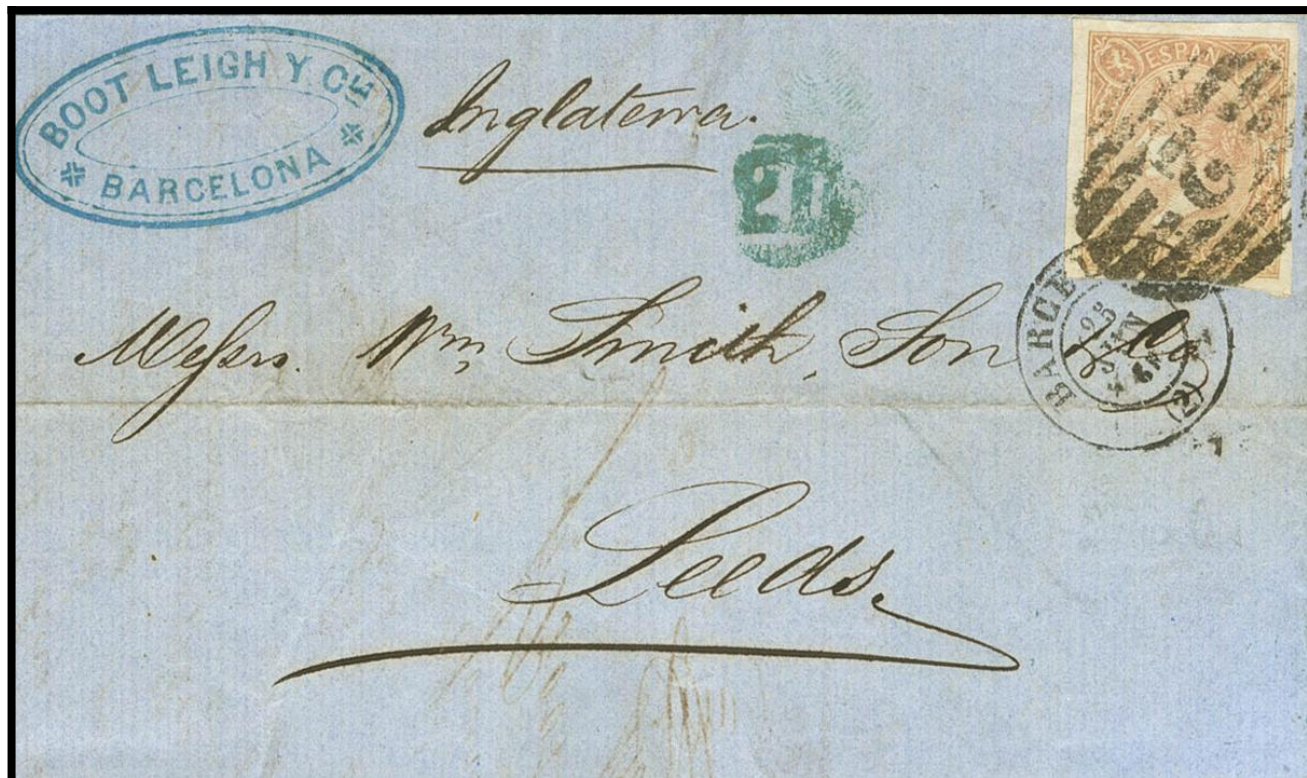 BOOT LEIGH Y Cᴵᴱ
BARCELONA
Inglaterra.
ESPAN
2
Messrs. Wm Smith, Son & Co
BARCEL
25
JUN
(2)
Leeds.